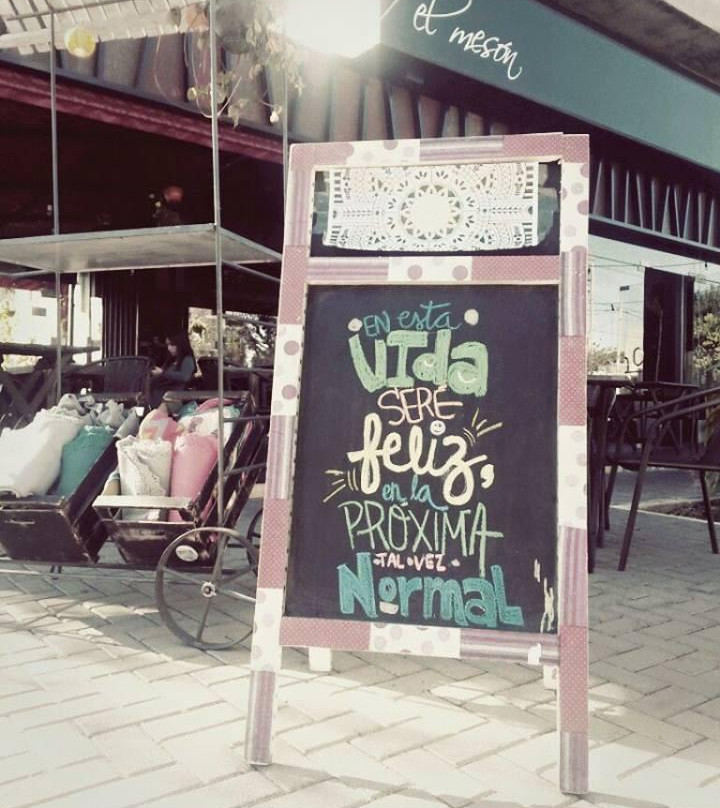 el mesón
EN esta
VIda
SERÉ
feliz,
en la
PRÓXIMA
TAL VEZ
Normal